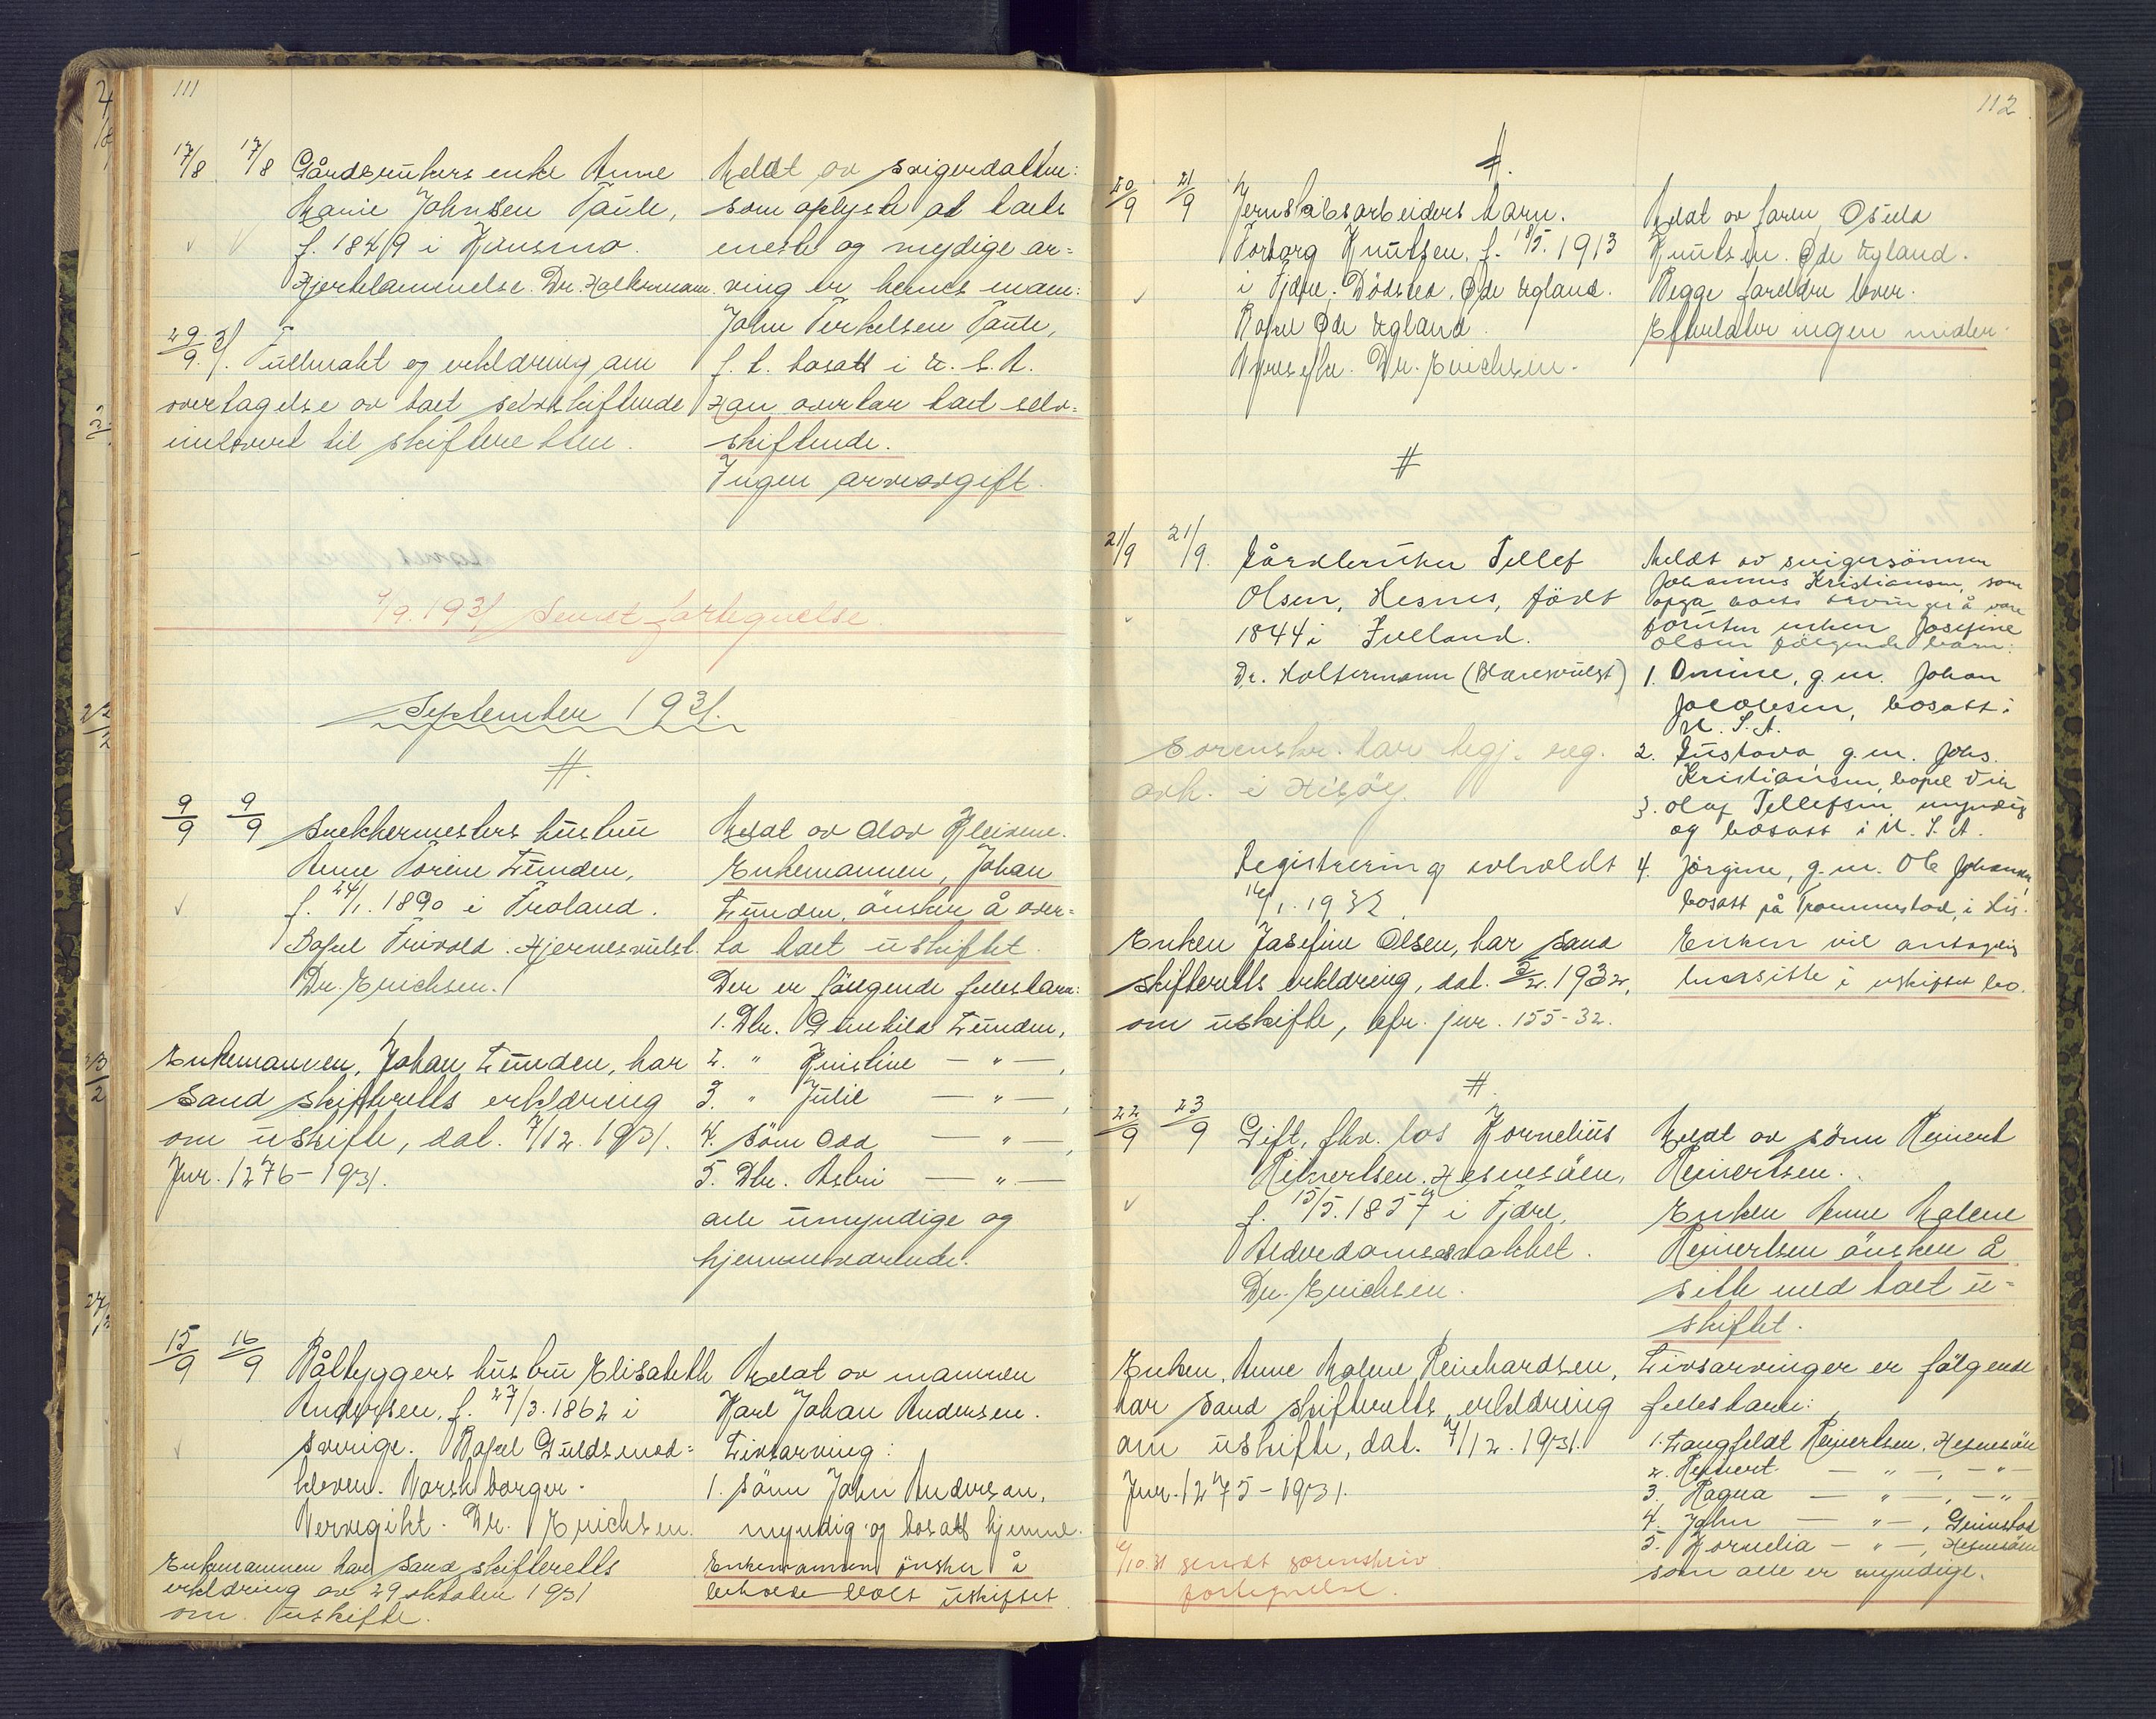 111
17/8 17/8 Gårdbrukers enke Anne
Marie Johnsen Taule,
f. 1849 i Hånsmo.
Hjertelammelse. Dr. Holtermann.
Meldt av svigerdatter:
som oplyste at boets
eneste og myndige ar=
ving er hennes mann:
John Terkelsen Taule,
f. t. bosatt i U. S. A.
Han overtar boet selv=
skiftende.
Ingen arveavgift.
29/9.31. Fullmakt og erklæring om
overtagelse av boet selvskiftende
innlevert til skifteretten.
1/9.1931 Sendt fortegnelse.
September 1931.
#.
9/9 9/9 Snekkermesters hustru
Anne Torine Lunden,
f. 24/1.1890 i Froland.
Bopel Frivold. Hjernesvulst.
Dr. Erichsen.
Meldt av Olav Kleivene.
Enkemannen, Johan
Lunden, ønsker å over=
ta boet uskiftet.
Der er følgende fellesbarn:
1. Dtr. Gunhild Lunden,
2. " Kristine — " —,
3. " Julie — " —,
4. Sønn Odd — " —,
5. Dtr. Astri — " —
alle umyndige og
hjemmeværende.
Enkemannen, Johan Lunden, har
Sand skifteretts erklæring
om uskifte, dat. 7/12.1931.
Jnr. 1276-1931.
15/9 16/9 Båtbyggers hustru Elisabeth
Andersen, f. 27/3.1862 i
Sverige. Bopel Guldsmed=
kleven. Norsk borger.
Nervegikt. Dr. Erichsen.
Meldt av mannen
Karl Johan Andersen.
Livsarving:
1. Sønn John Anderson,
myndig og bosatt hjemme.
Enkemannen ønsker å
beholde boet uskiftet.
Enkemannen har Sand skifteretts
erklæring av 29 oktober 1931
om uskifte.
112
#.
20/9 21/9 Jernskibsarbeiders barn.
Torborg Knutsen, f. 18/5.1913
i Fjære. Dødsted. Øde Egland.
Bopel Øde Egland.
Dr. Erichsen.
Meldt av faren
Knutsen. Øde Egland.
Begge foreldre lever.
Efterlater ingen midler.
#
21/9 21/9. Gårdbruker Tellef
Olsen, Hesnes, født
1844 i Jylland.
Dr. Holtermann (Blæresvulst)
Meldt av svigersønnen
Johannes Kristiansen, som
opga boets arvinger å være
foruten enken Josefine
Olsen følgende barn:
1. Omine, g.m. Johan
Jacobsen, bosatt i
U. S. A.
2. Gustava g.m. Johs.
Kristiansen, bopel Vik
3. Olaf Tellefsen, myndig
og bosatt i U. S. A.
4. Jørgine, g.m. Ole Johansen,
bosatt på Trommestad, i His.
Enken vil antagelig
hensitte i uskiftet bo.
Sorenskr. har begj. reg.
avh. i Hisøy.
Registrering avholdt
16/1.1932.
Enken Josefine Olsen, har Sand
skifteretts erklæring, dat. 2/2.1932,
om uskifte, cfr. jnr. 155-32.
#.
22/9 23/9 Gift, fhv. los Kornelius
Reinertsen. Hesnesøen,
f. 15/5.1857 i Fjære,
Alderdomssvakhet.
Dr. Erichsen.
Meldt av sønn Reinert
Reinertsen.
Enken Anne Malene
Reinertsen ønsker å
sitte med boet u=
skiftet.
Livsarvinger er følgende
fellesbarn:
1. Langfeldt Reinertsen, Hesnesøen
2. Reinert — " —, — " —
3. Ragna — " —, — " —
4. John — " —, Grimstad
5. Kornelia — " —, Hesnesøen
som alle er myndige.
Enken, Anne Malene Reinhardsen,
har Sand skifteretts erklæring
om uskifte, dat. 7/12.1931.
Jnr. 1275-1931.
6/10.31 sendt sorenskriv
fortegnelse.